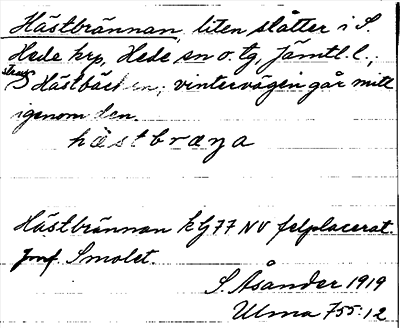 Hästbrännan, liten slåtter i S.
Hede krp, Hede sn o. tg, Jämtl. l.;
S Hästbäcken; vintervägen går mitt
igenom den.
hästbräna
Hästbrännan kG77 NV felplacerat.
Jmf. Smolet.
S. Åsander 1919
Ulma 755:12